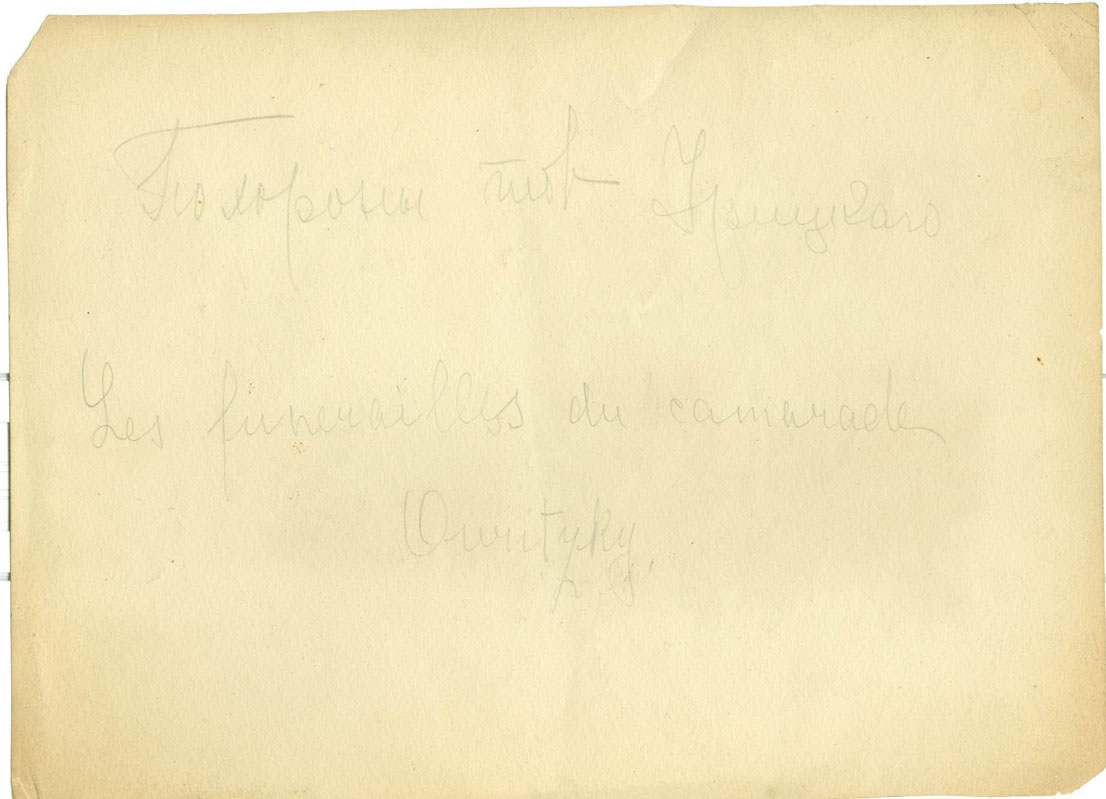 Похороны тов Урицкаго
Les funerailles du camarade
Ouritzky.